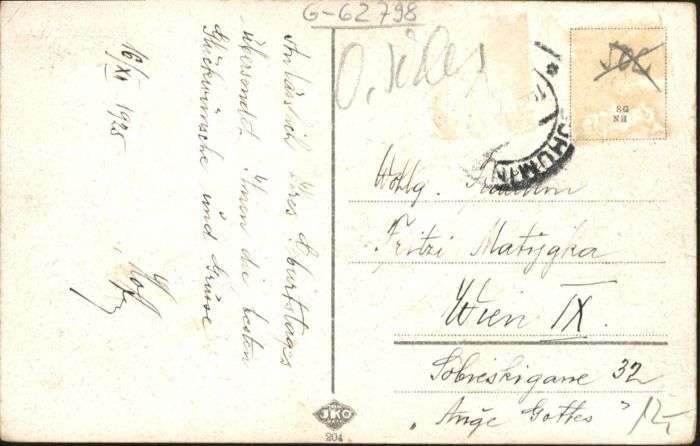 G-62798
Anlässlich Ihres Geburtstages
übersendet Ihnen die besten
Glückwünsche und Grüsse
16/XI 1925
SG
NE
Wohlg. Fräulein
Fritzi Matijgka
Wien IX.
Sobieskigasse 32
"Auge Gottes"
JKO
204